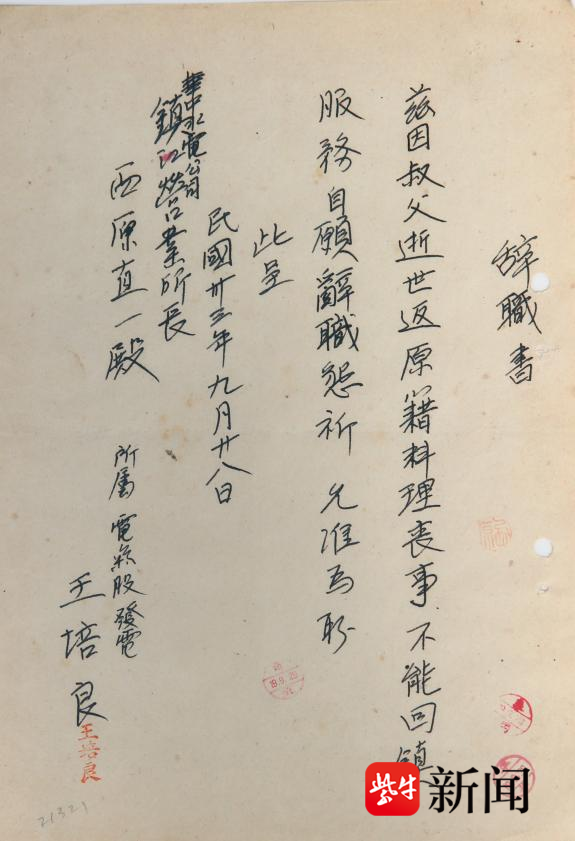 辞職書
茲因叔父逝世返原籍料理丧事不能回鎮
服務自願辭職懇祈 允准為盼
此呈
民國卅三年九月廿八日
華中水電公司
鎮江營業所長
西原直一殿
所属 電氣股發電
王培良
王培良
19.9.29
21321
紫牛新闻